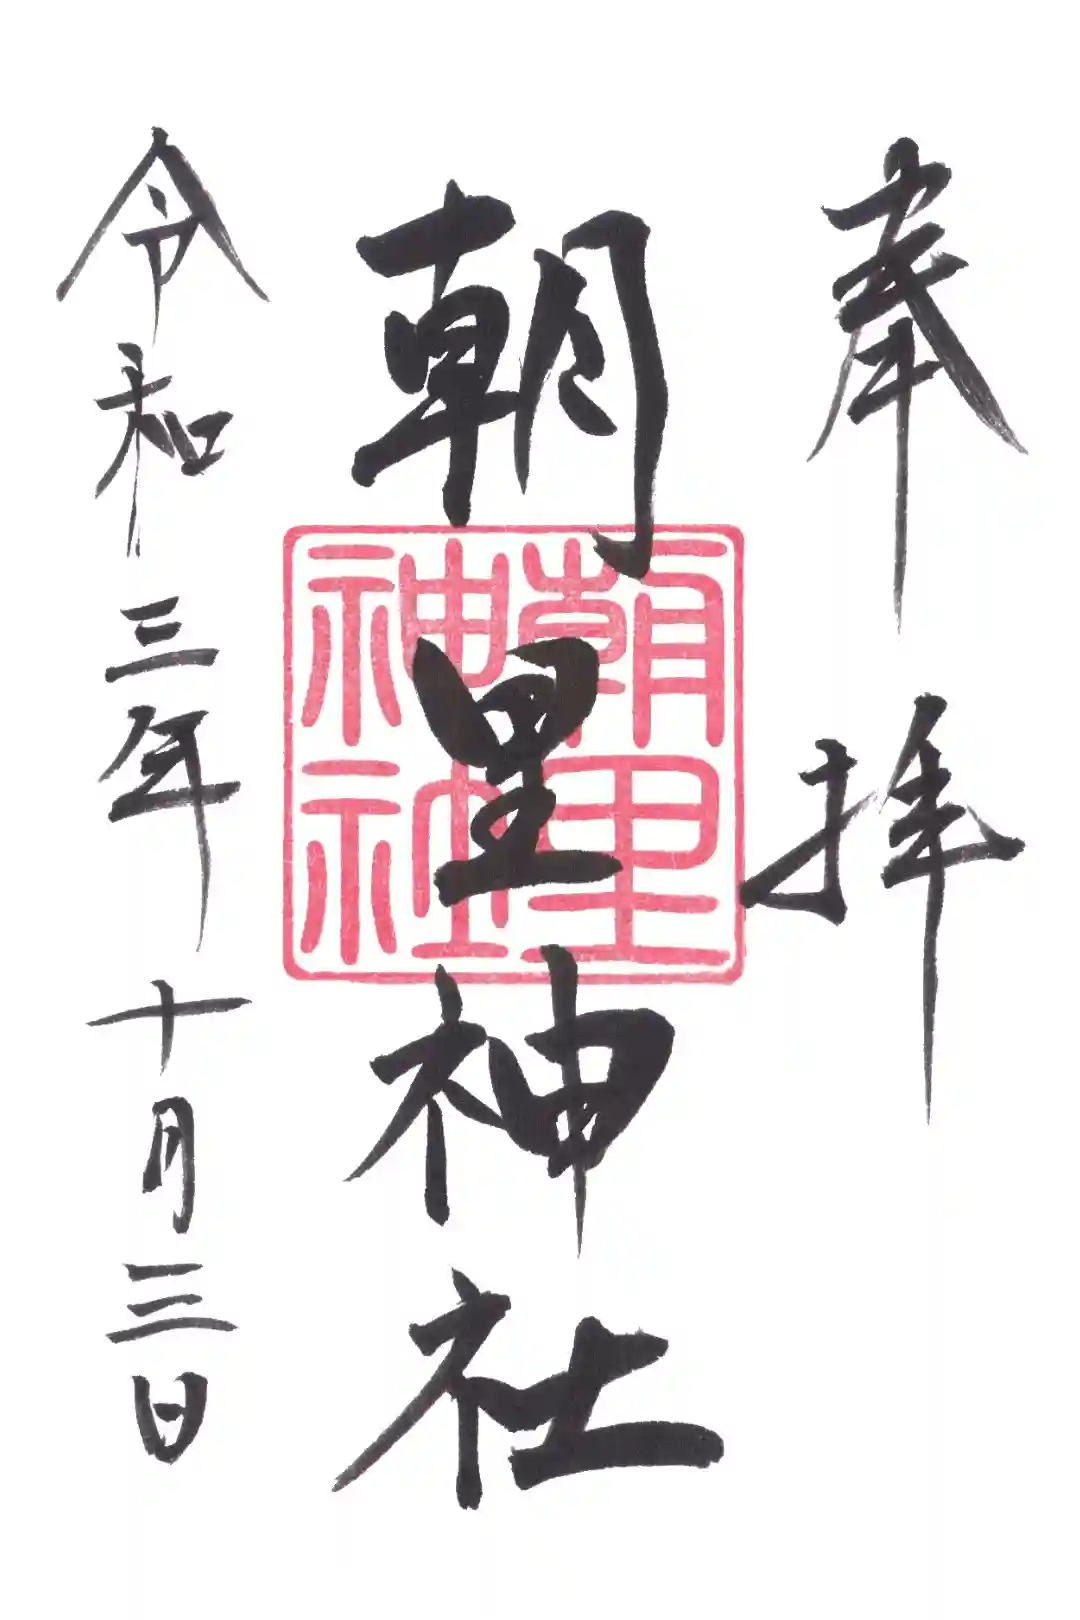 奉拝
朝里神社
朝里
神社
令和三年十月三日